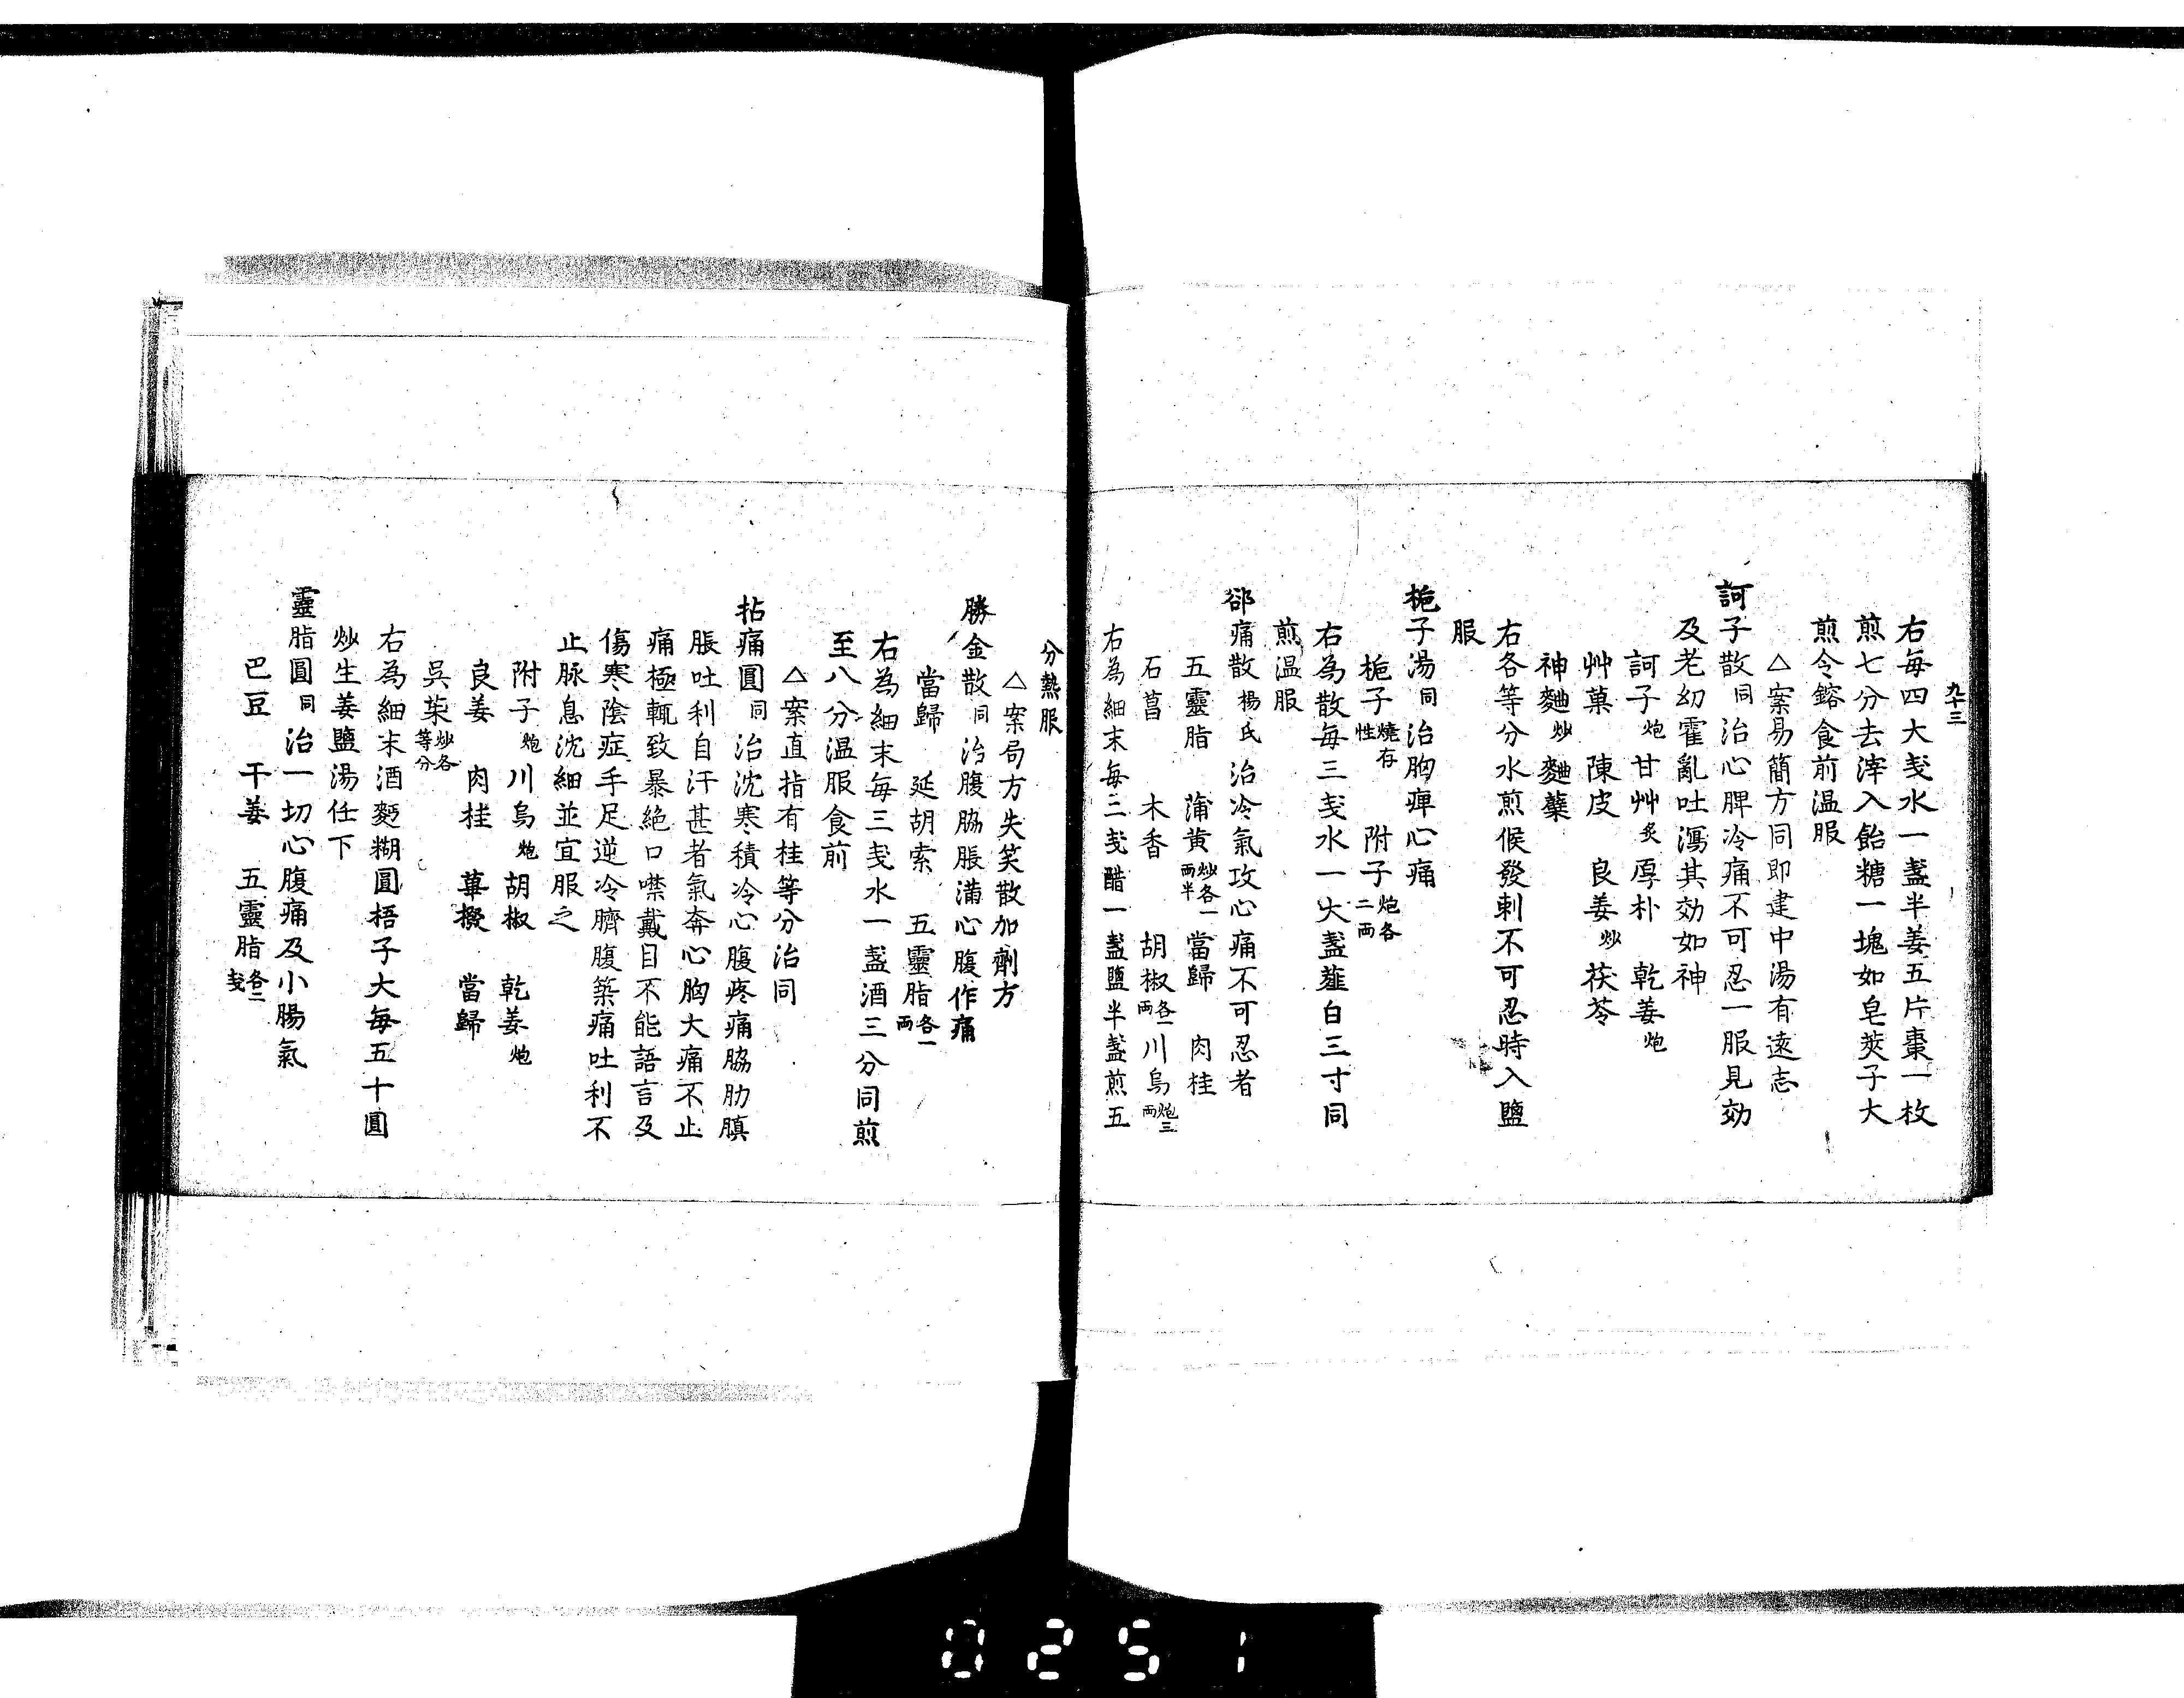 九十三
右毎四大戔水一盞半姜五片棗一枚
煎七分去滓入飴糖一塊如皂莢子大
煎令鎔食前温服
△案易簡方同即建中湯有遠志
訶子散同治心脾冷痛不可忍一服見効
及老幼霍亂吐瀉其効如神
訶子炮 甘艸炙 厚朴 乾姜炮
艸菓 陳皮 良姜炒 茯苓
神麯炒 麥蘗
右各等分水煎候發刺不可忍時入鹽
服
梔子湯同治胸痺心痛
梔子燒存性 附子炮各二両
右為散毎三戔水一大盞薤白三寸同
煎温服
郤痛散楊氏治冷氣攻心痛不可忍者
五靈脂 蒲黄炒各一両半 當歸 肉桂
石菖 木香 胡椒各一両 川烏炮三両
右為細末毎三戔醋一盞鹽半盞煎五
分熱服
△案局方失笑散加劑方
勝金散同治腹脇脹滿心腹作痛
當歸 延胡索 五靈脂各一両
右為細末毎三戔水一盞酒三分同煎
至八分温服食前
△案直指有桂等分治同
拈痛圓同治沈寒積冷心腹疼痛脇肋䐜
脹吐利自汗甚者氣奔心胸大痛不止
痛極輒致暴絶口噤戴目不能語言及
傷寒陰症手足逆冷臍腹築痛吐利不
止脉息沈細並宜服之
附子炮 川烏炮 胡椒 乾姜炮
良姜 肉桂 蓽撥 當歸
吳茱炒各等分
右為細末酒麪糊圓梧子大毎五十圓
炒生姜鹽湯任下
靈脂圓同治一切心腹痛及小腸氣
巴豆 干姜 五靈脂各二戔
0251